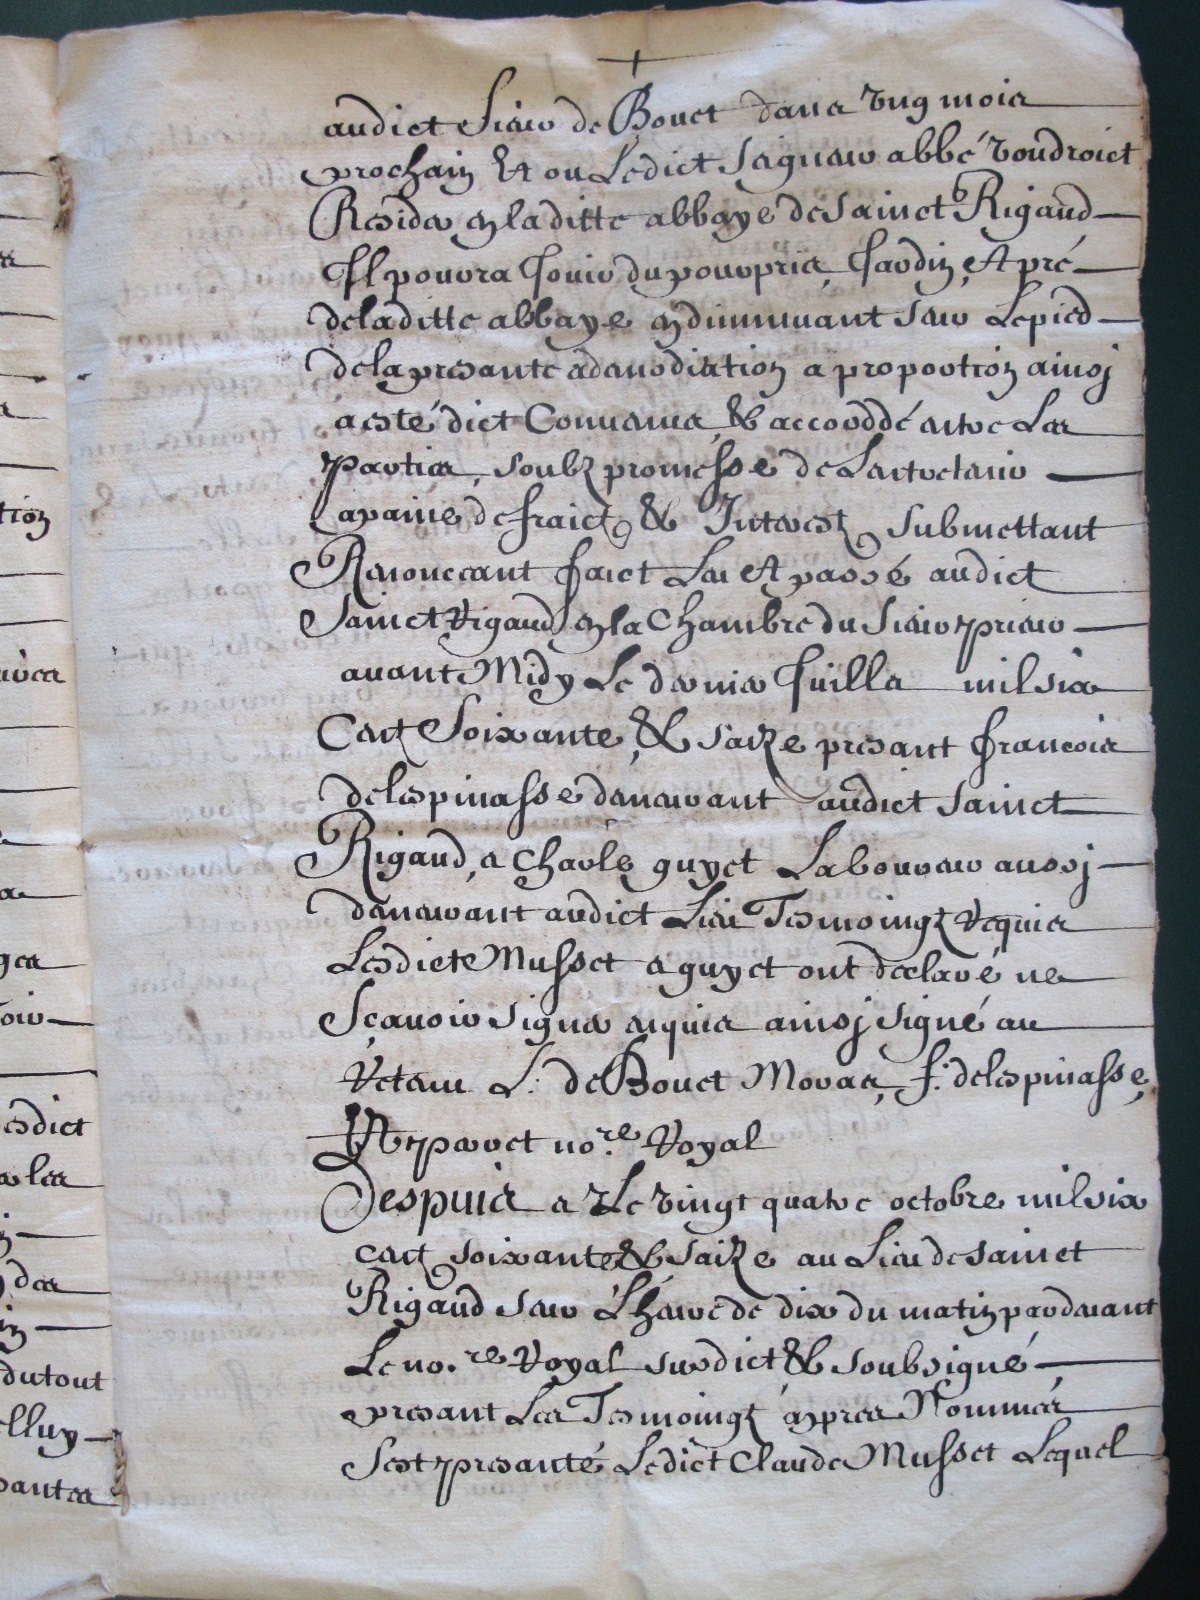 audict Sieur de Bouet dans ung mois
prochain Et ou Ledict Seigneur abbé voudroict
Resider en laditte abbaye de Sainct Rigaud
Il pourra Jouir du pourpris, Jardin, Et pré
de laditte abbaye en diminuant sur Le pied
de la presante admodiation a proportion ainsj
a esté dict Convenus, & accorddé entre Les
parties, soubz promesse de Lentretenir
a paine de fraictz & Interestz submettant
Renonceant faict Leu Et passé audict
Sainct Rigaud en la Chambre du Sieur prieur
avant Midy Le dernier Juillet mil six
Centz Soixante, & saize presant francois
delespinasse demeurant audict Sainct
Rigaud, e Charle guyet Laboureur aussj
demeurant audict Lieu Tesmoingz Requis
Lesdicts Musset e guyet ont declaré ne
Sçavoir signer enquis ainsj signé au
Retenu L. de Bouet Moras, f. delespinasse,
Et perret no.re Royal
Despuis e Le vingt quatre octobre mil six
centz soixante & saize au Lieu de sainct
Rigaud sur L'heure de dix du matin pardevant
Le no.re Royal susdict & soubsigné
presant Les Tesmoingz apres Nommés
S'est presanté Ledict Claude Musset Lequel